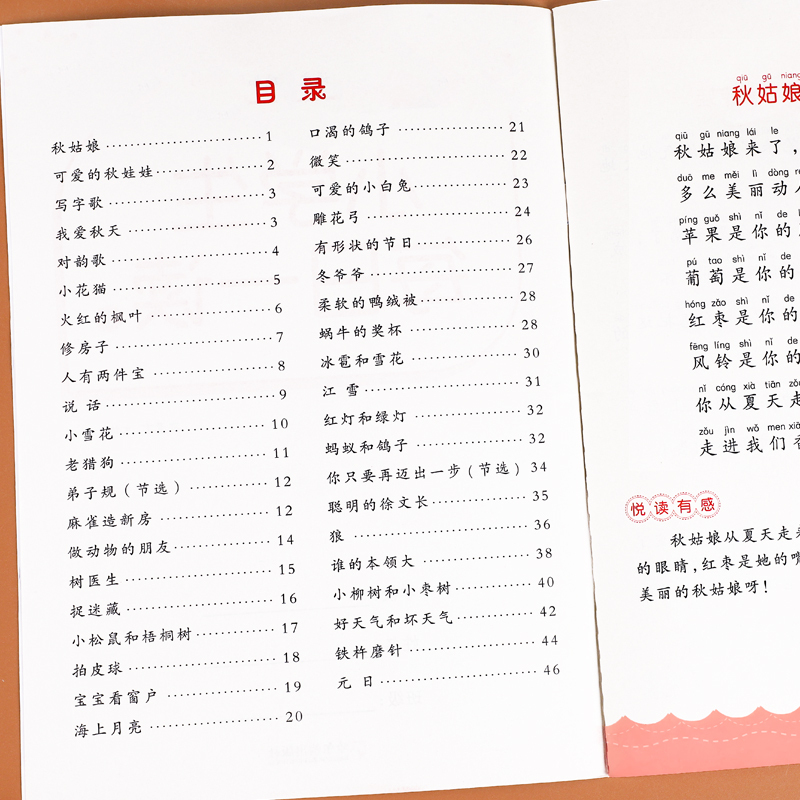 目 录
秋姑娘 1
可爱的秋娃娃 2
写字歌 3
我爱秋天 3
对韵歌 4
小花猫 5
火红的枫叶 6
修房子 7
人有两件宝 8
说 话 9
小雪花 10
老猎狗 11
弟子规（节选） 12
麻雀造新房 12
做动物的朋友 14
树医生 15
捉迷藏 16
小松鼠和梧桐树 17
拍皮球 18
宝宝看窗户 19
海上月亮 20
口渴的鸽子 21
微笑 22
可爱的小白兔 23
雕花弓 24
有形状的节日 26
冬爷爷 27
柔软的鸭绒被 28
蜗牛的奖杯 28
冰雹和雪花 30
江 雪 31
红灯和绿灯 32
蚂蚁和鸽子 32
你只要再迈出一步（节选） 34
聪明的徐文长 35
狼 36
谁的本领大 38
小柳树和小枣树 40
好天气和坏天气 42
铁杵磨针 44
元 日 46
qiū gū niang
秋姑娘
qiū gū niang lái le
秋姑娘来了，
duō me měi lì dòng
多么美丽动
píng guǒ shì nǐ de
苹果是你的
pú tao shì nǐ de
葡萄是你的
hóng zǎo shì nǐ de
红枣是你的
fēng líng shì nǐ de
风铃是你的
nǐ cóng xià tiān
你从夏天走
zǒu jìn wǒ men
走进我们
悦读有感
秋姑娘从夏天走
的眼睛，红枣是她的嘴
美丽的秋姑娘呀！